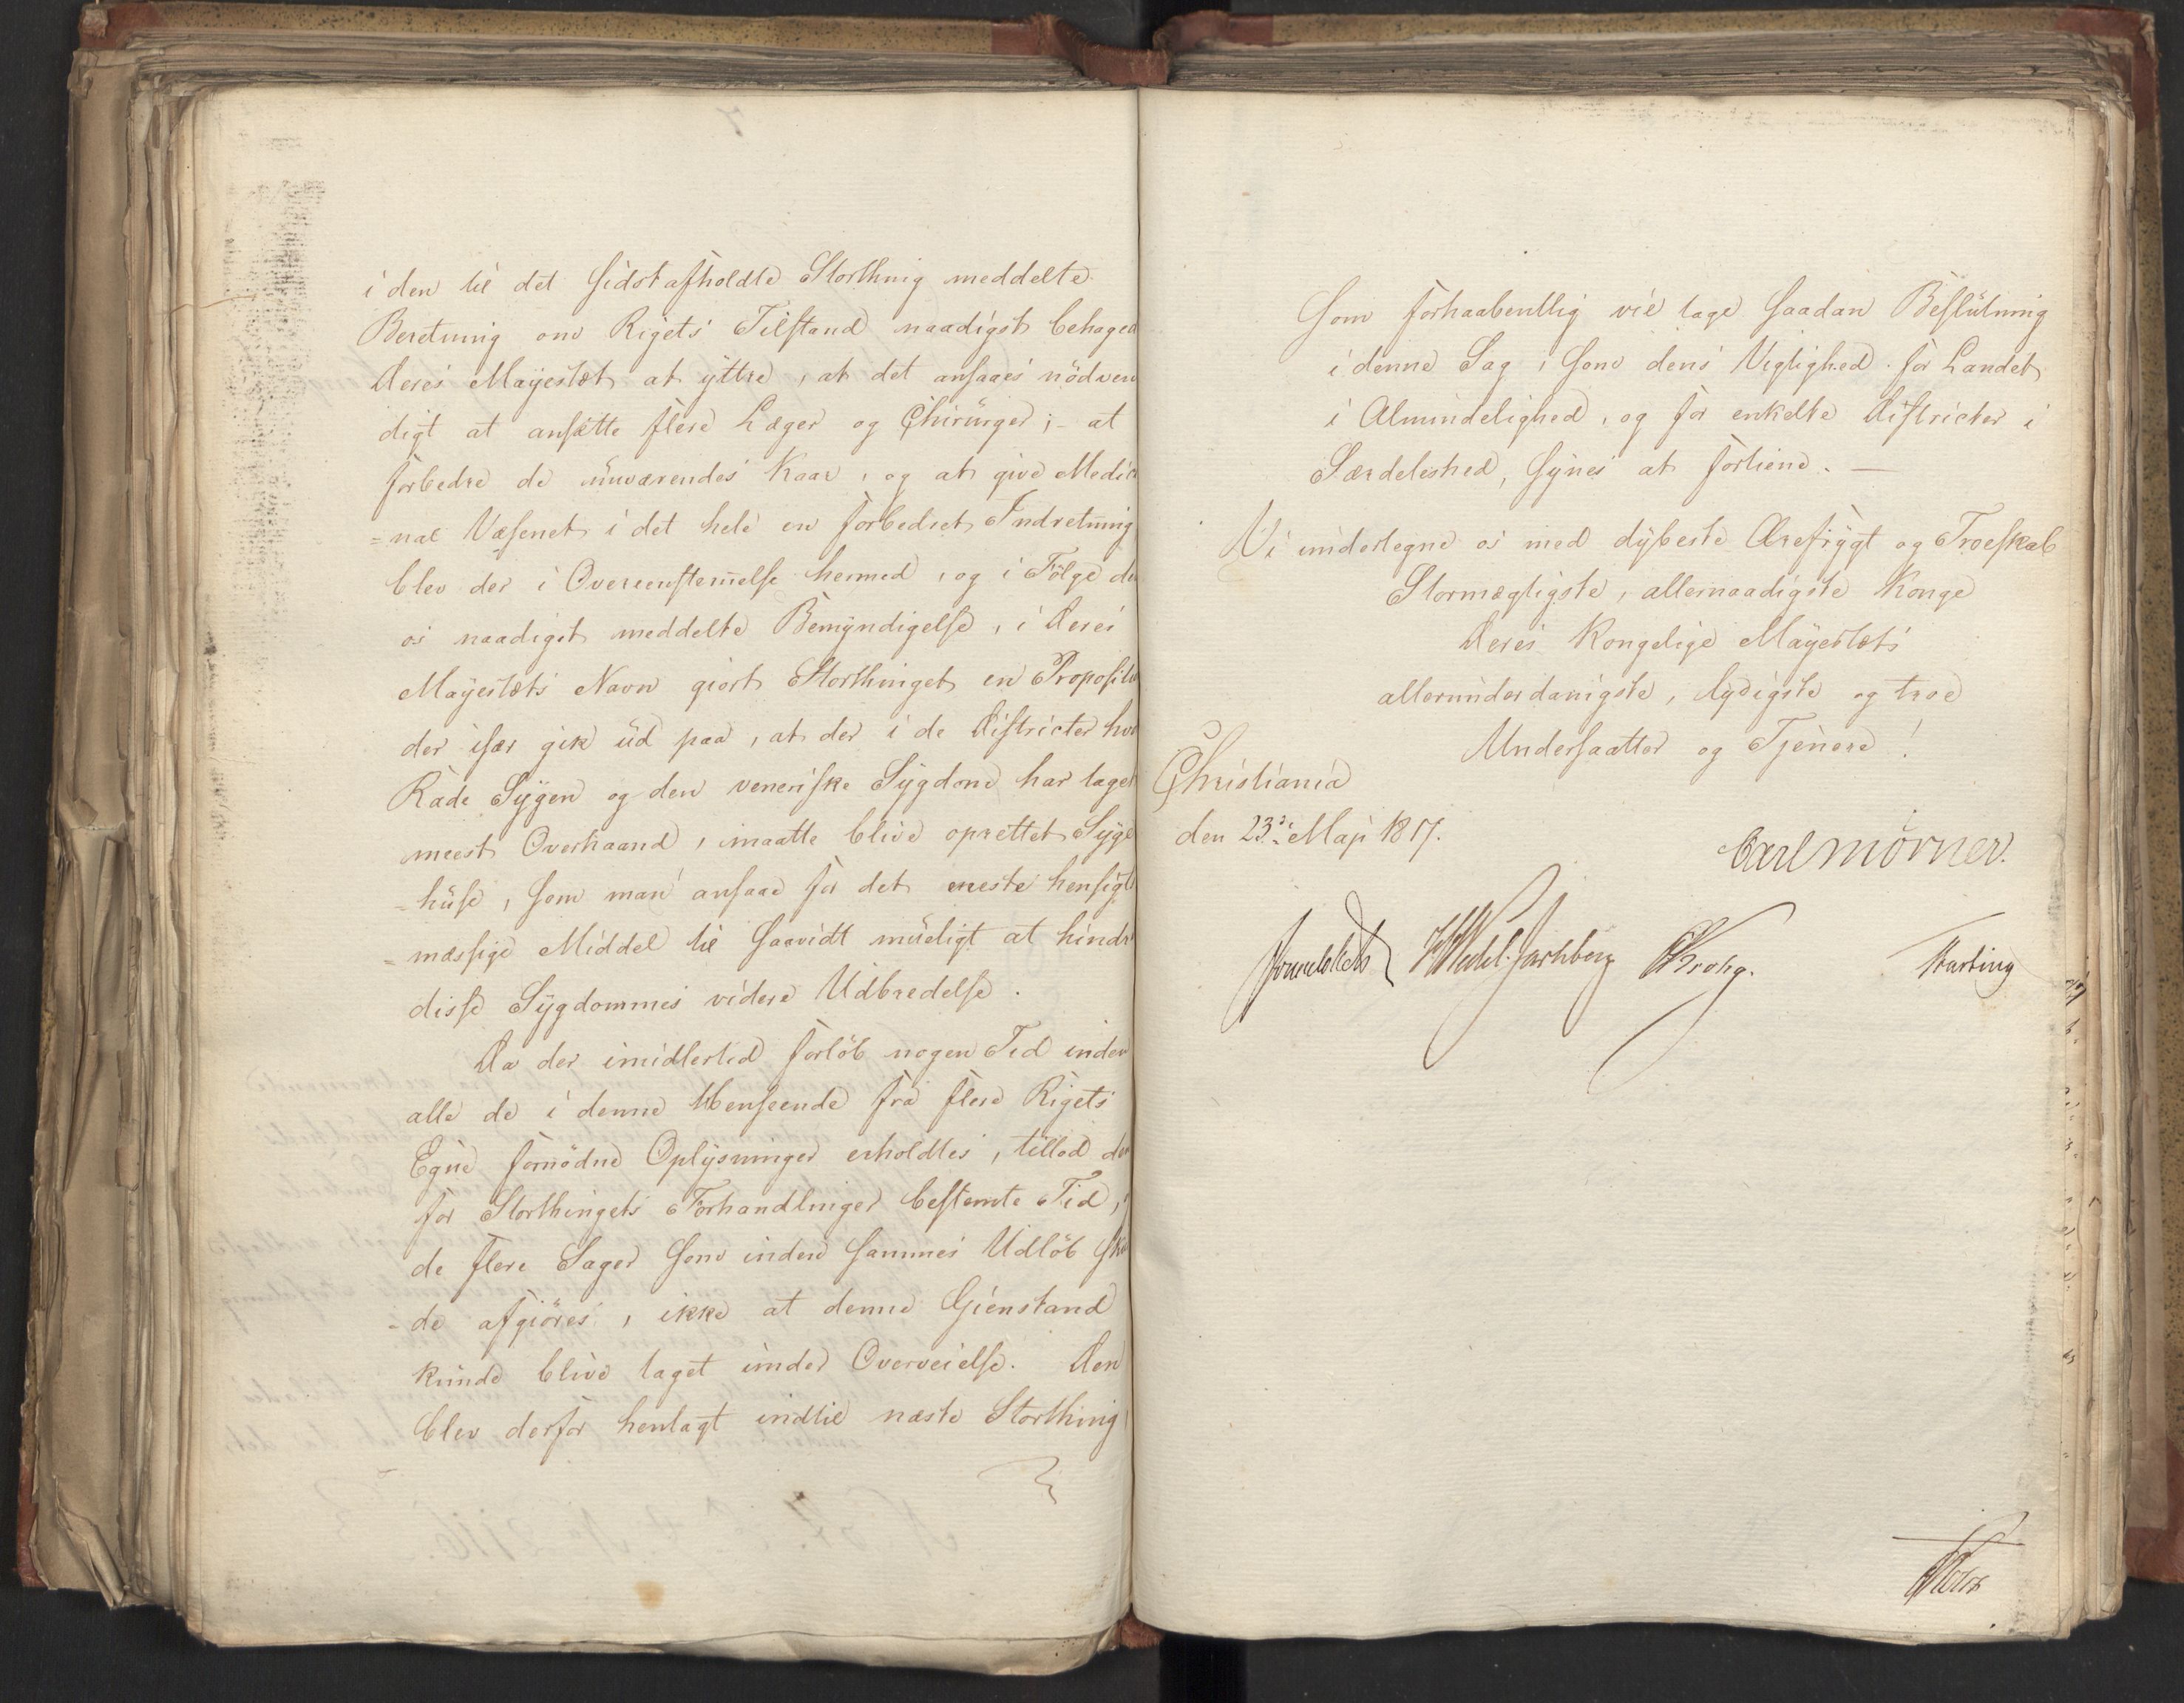 i den til det sidst afholdte Storthing meddelte
Beretning om Rigets Tilstand naadigst behaged
Deres Mayestæt at yttre, at det ansaaes nödven
digt at ansætte flere Læger og Chirurger; - at
forbedre de nuværendes Kaar, og at give Medici
=nal Væsenet i det hele en forbedret Indretning
blev der i Overeenstem̅else hermed, og i Fölge de
os naadigst meddelte Bemyndigelse, i Deres
Mayestæts Navn giort Storthinget en Propositi
der især gik ud paa, at der i de Districter hvo
Rade Sygen og den veneriske Sygdom har taget
meest Overhaand, maatte blive oprettet Syge
=huse, som man ansaae for det eneste hensigts
=mæssige Middel til saavidt mueligt at hindre
disse Sygdommes videre Udbredelse.
Da der imidlertid forlöb nogen Tid inden
alle de i denne Henseende fra flere Rigets
Egne fornödne Oplysninger erholdtes, tillod den
for Storthingets Forhandlinger bestemte Tid,
de flere Sager som inden sammes Udlöb skul
=de afgiöres, ikke at denne Gienstand
kunde blive taget under Overveielse. Den
blev derfor henlagt indtil næste Storthing
som forhaabentlig vil tage saadan Beslutning
i denne Sag, som dens Vigtighed for Landet
i Almindelighed, og for enkelte Districter i
Særdeleshed, synes at fortiene. —
Vi undertegne os med dybeste Ærefrygt og Troeskab
Stormægtigste, allernaadigste Konge
Deres Kongelige Mayestæts
allerunderdanigste, lydigste og troe
Undersaatter og Tjenere!
Christiania
den 23de Maji 1817.
Carl Mörner.
Sommerhielm HWedel-Jarlsberg CKrohg. Harting